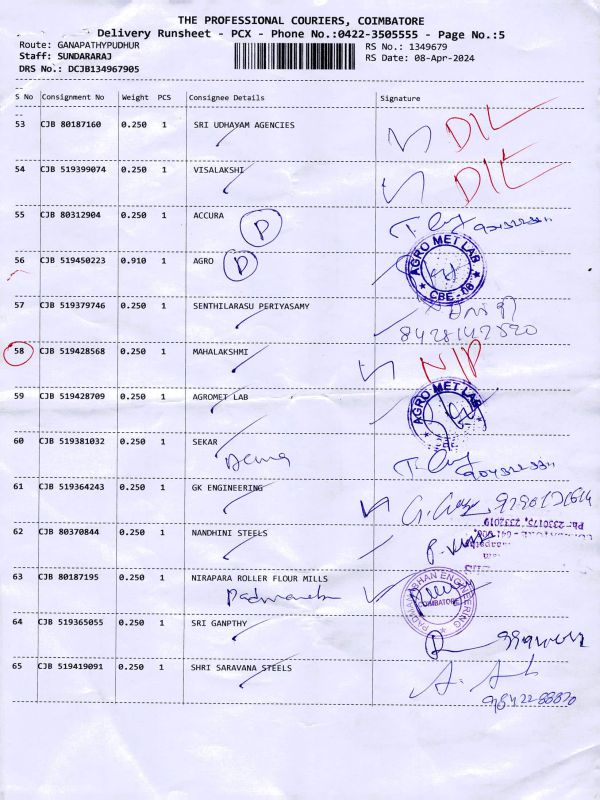 THE PROFESSIONAL COURIERS, COIMBATORE
Delivery Runsheet - PCX - Phone No.:0422-3505555 - Page No.:5
Route: GANAPATHYPUDHUR RS No.: 1349679
Staff: SUNDARARAJ RS Date: 08-Apr-2024
DRS No.: DCJB134967905
S No Consignment No Weight PCS Consignee Details Signature
53 CJB 80187160 0.250 1 SRI UDHAYAM AGENCIES DIL
54 CJB 519399074 0.250 1 VISALAKSHI DIL
55 CJB 80312904 0.250 1 ACCURA P
56 CJB 519450223 0.910 1 AGRO P AGRO MET LAB CBE-06
57 CJB 519379746 0.250 1 SENTHILARASU PERIYASAMY
8428142520
58 CJB 519428568 0.250 1 MAHALAKSHMI NIP
59 CJB 519428709 0.250 1 AGROMET LAB AGRO MET LAB
60 CJB 519381032 0.250 1 SEKAR
61 CJB 519364243 0.250 1 GK ENGINEERING
Ph: 2330175, 2332019
62 CJB 80370844 0.250 1 NANDHINI STEELS
63 CJB 80187195 0.250 1 NIRAPARA ROLLER FLOUR MILLS PADMANABHAN ENGINEERING COIMBATORE
64 CJB 519365055 0.250 1 SRI GANPTHY
65 CJB 519419091 0.250 1 SHRI SARAVANA STEELS